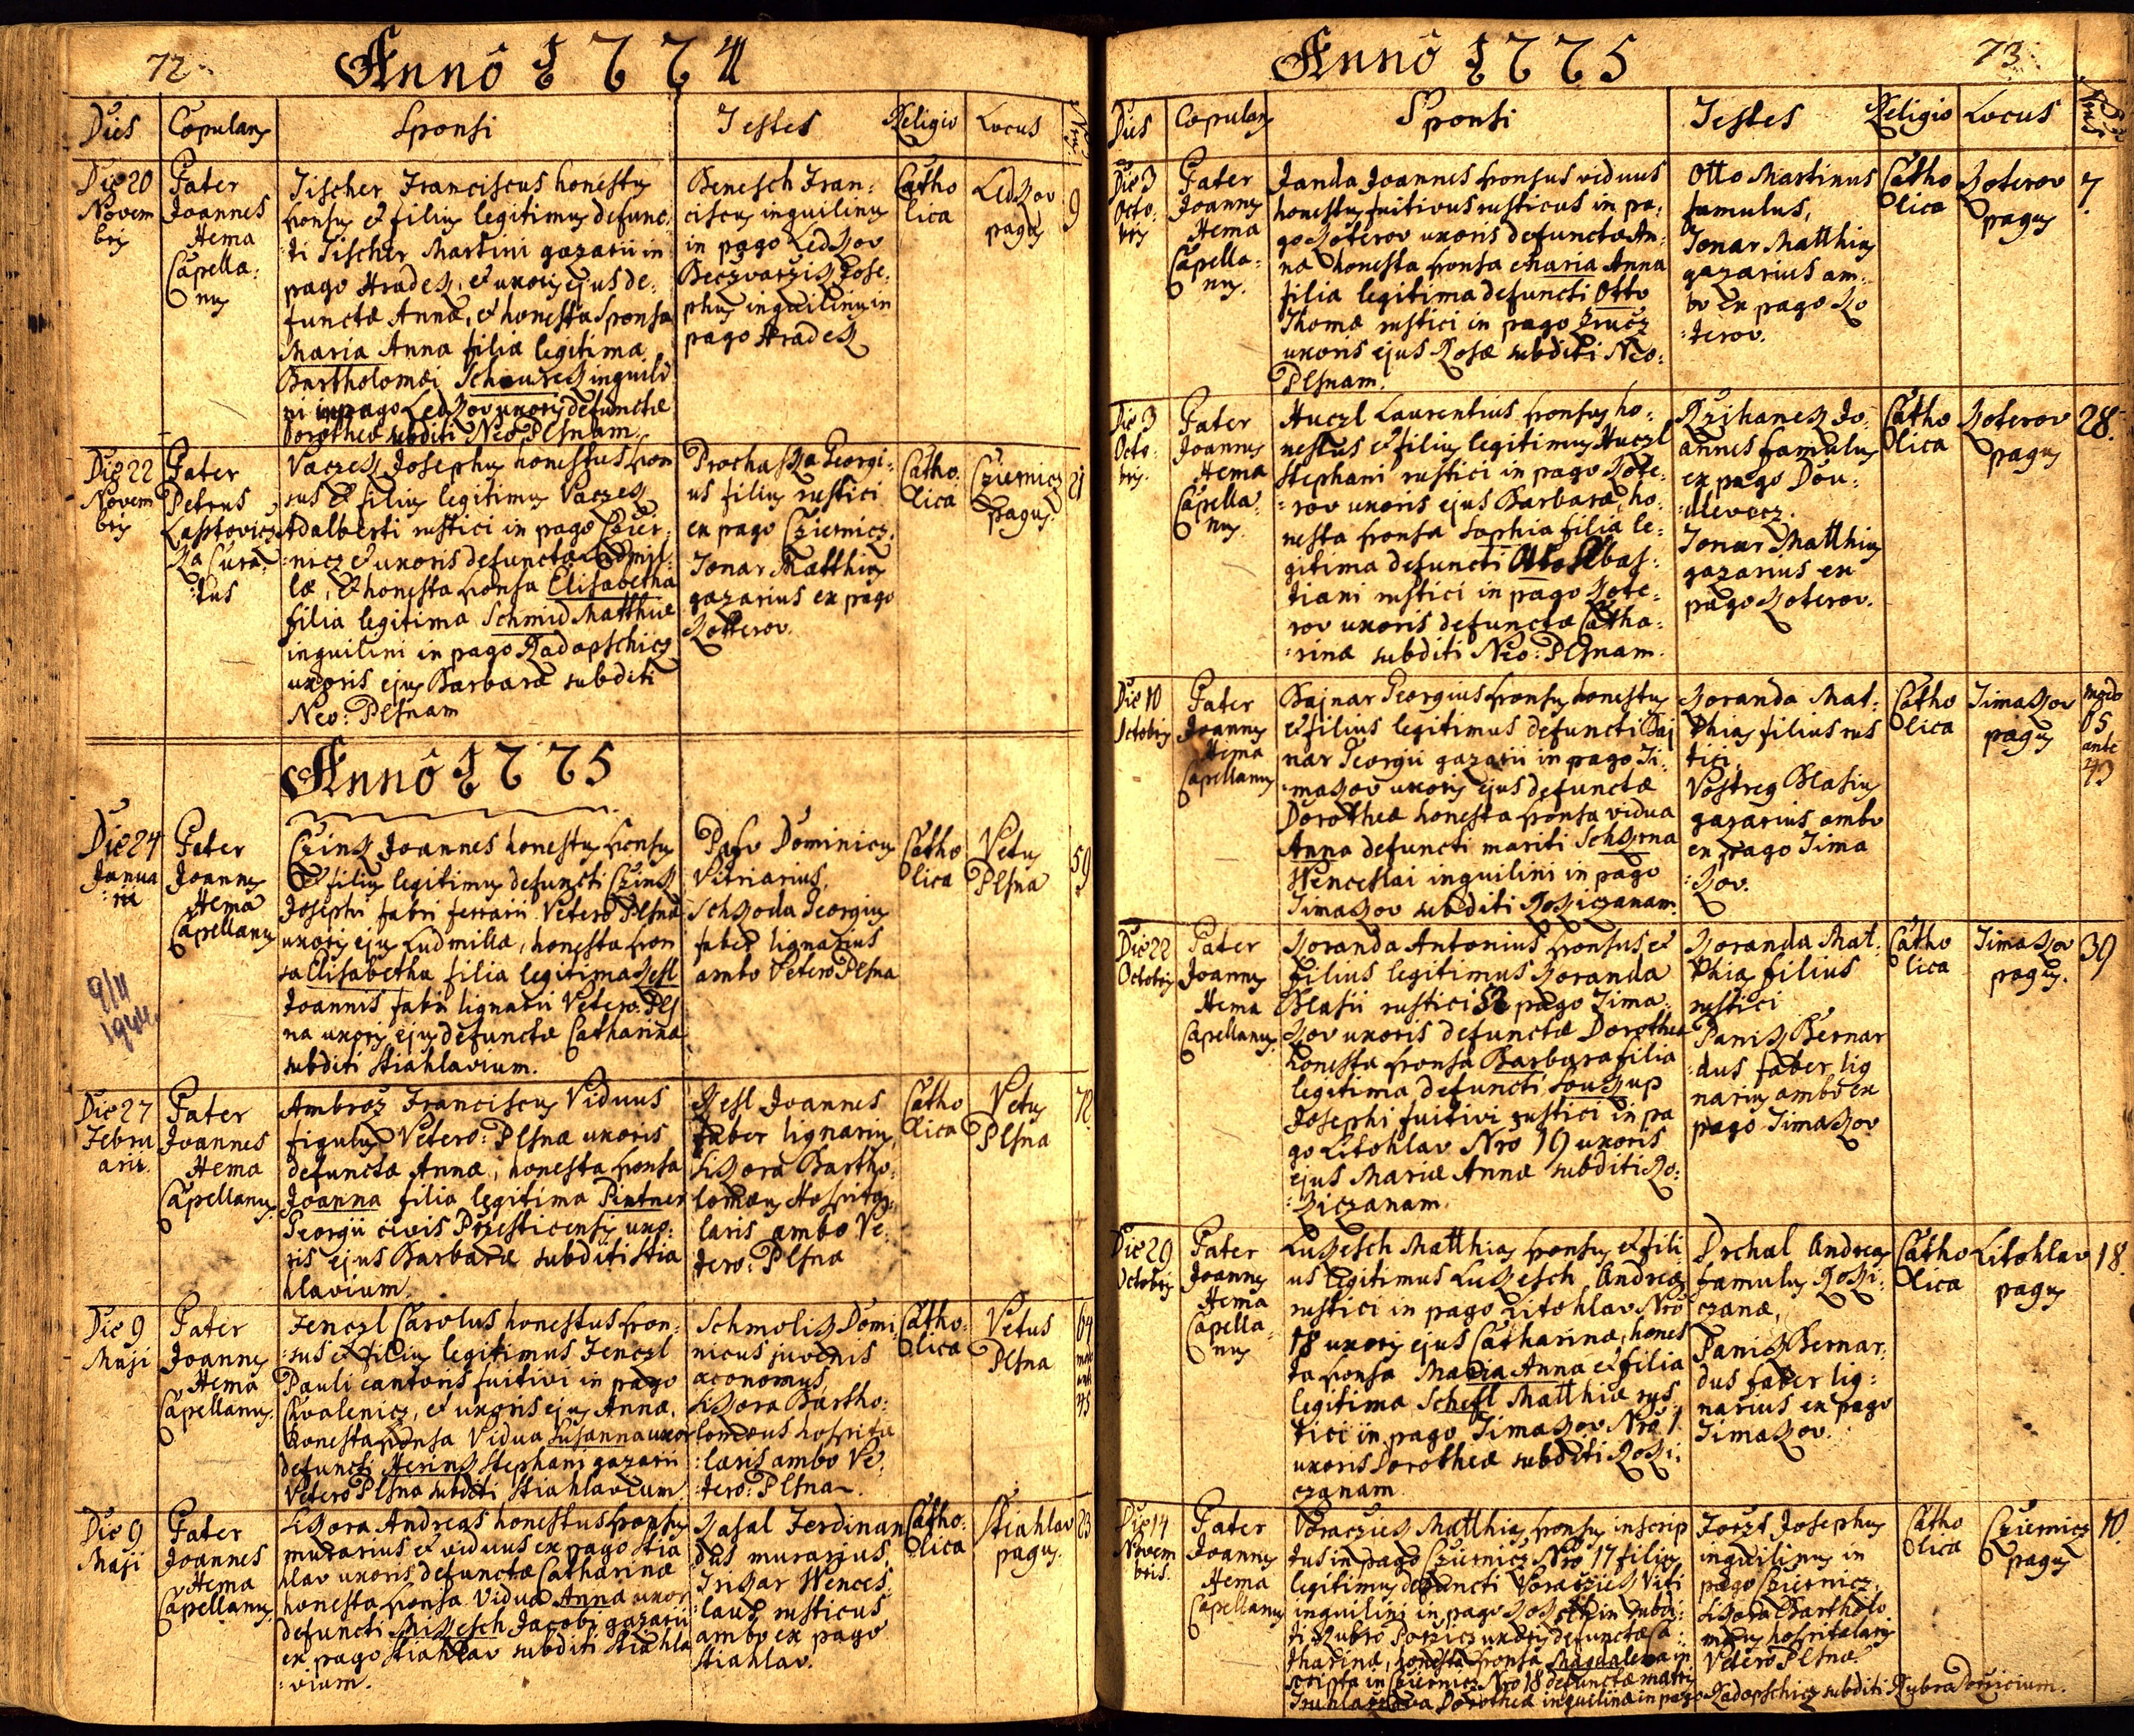 72
Annô 1774
Dies Copulans Sponsi Testes Religio Locus
Die 20
Novem
bris
Pater
Joannes
Hema
Capella:
nus
Tischer Franciscus honestus
sponsus et filius legitimus defunc:
ti Tischer Martini gazarii in
pago Hradek, et uxoris ejus de:
functæ Annæ, et honesta sponsa
Maria Anna filia legitima
Bartholomæi inquili
ni in pago Ledkov uxoris defunctæ
Dorotheæ subditi Neo Plsnam.
Benesch Fran:
ciscus inquilinus
in pago Ledkov
Beczvarzik Jose:
phus inquilinus in
pago Hradek
Catho
lica
Ledkov
pagus
9
Die 22
Novem
bris
Pater
Petrus
Lastovicz
Ka Cura:
tus
Vaczek Josephus honestus spon
sus et filius legitimus Vaczek
Adalberti rustici in pago Czier:
nicz et uxoris defunctæ Ludmil:
læ, et honesta sponsa Elisabetha
filia legitima Schmid Matthiæ
inquilini in pago Radopschicz
uxoris ejus Barbaræ subditi
Neo: Plsnam
Prochaska Georgi:
us filius rustici
ex pago Cziernicz.
Tonar Matthias
gazarius ex pago
Kotterov.
Catho:
lica
Cziernicz
pagus.
21
Annô 1775
Die 24
Janua
:rii
Pater
Joannes
Hema
Capellanus
9/11
1944.
Czink Joannes honestus sponsus
et filius legitimus defuncti Czink
Josephi fabri ferrarii Vetero Plsnæ
uxoris ejus Ludmillæ, honesta spon
sa Elisabetha filia legitima Kesl
Joannis fabri lignarii Vetero: Pls
na uxoris ejus defunctæ Catharinæ
subditi Stiahlavium.
Dominicus
Vitriarius,
Schkoda Georgius
faber lignarius
ambo Vetero Plsna
Catho
lica
Vetus
Plsna
59
Die 27
Febru
arii.
Pater
Joannes
Hema
Capellanus.
Ambroz Franciscus Viduus
figulus Vetero: Plsnæ uxoris
defunctæ Annæ, honesta sponsa
Joanna filia legitima Pintner
Georgii civis Przesticensis uxo:
ris ejus Barbaræ subditi Stia
hlavium.
Kesl Joannes
faber lignarius,
Sikora Bartho:
lomæus Hospita:
laris ambo Ve:
tero: Plsna
Catho
lica
Vetus
Plsna
72.
Die 9
Maji
Pater
Joannes
Hema
Capellanus.
Jenczl Carolus honestus spon:
:sus et filius legitimus Jenczl
Pauli cantoris fuitivi in pago
Chvalenicz, et uxoris ejus Annæ,
honesta sponsa Vidua Susanna uxor
defuncti Herink Stephani gazarii
Vetero Plsna subditi Stiahlavium
Schmolik Domi
nicus juvenis
æconomus,
Sikora Bartho:
lomæus hospita
:laris ambo Ve:
:tero: Plsna.
Catho:
lica
Vetus
Plsna
64
45
Die 9
Maji
Pater
Joannes
Hema
Capellanus
Sikora Andreas honestus sponsus
murarius et viduus ex pago Stia
hlav uxoris defunctæ Catharinæ
honesta sponsa Vidua Anna uxor
defuncti Mikesch Jacobi gazarii
ex pago Stiahlav subditi Stiahla
:vium.
Kasal Ferdinan
dus murarius,
Triskar Wences:
:laus rusticus
ambo ex pago
Stiahlav.
Catho:
lica
Stiahlav
pagus.
23
Annô 1775
73
Dies Copulans Sponsi Testes Religio Locus
Die 3
Octo:
bris
Pater
Joannes
Hema
Capella:
nus.
Janda Joannes sponsus viduus
honestus fuitivus rusticus in pa:
go Koterov uxoris defunctæ An:
næ honesta sponsa Maria Anna
filia legitima defuncti Otto
Thomæ rustici in pago Hrucz
uxoris ejus Rosæ subditi Neo:
Plsnam.
Otto Martinus
famulus,
Tonar Matthias
gazarius am:
bo ex pago Ko
:terov.
Catho
lica
Koterov
pagus
7.
Die 3
Octo:
bris.
Pater
Joannes
Hema
Capella
nus.
Huczl Laurentius sponsus ho:
nestus et filius legitimus Huczl
Stephani rustici in pago Kote:
:rov uxoris ejus Barbaræ, ho:
nesta sponsa Sophia filia le:
gitima defuncti Otto Sebas:
tiani rustici in pago Kote:
rov uxoris defunctæ Catha:
:rinæ subditi Neo: Plsnam.
Krzihanek Jo:
annes famulus
ex pago Dou:
:dlevecz.
Tonar Matthias
gazarius ex
pago Koterov.
Catho
lica
Koterov
pagus
28.
Die 10
Octobris
Pater
Joannes
Hema
Capellanus
Bajnar Georgius sponsus honestus
et filius legitimus defuncti Baj
nar Georgii gazarii in pago Ti:
:makov uxoris ejus defunctæ
Dorotheæ honesta sponsa vidua
Anna defuncti mariti Schkrna
Wenceslai inquilini in pago
Timakov subditi Rokiczanam.
Koranda Mat:
thias filius rus
tici,
Vostreg Blasius
gazarius ambo
ex pago Tima
:kov.
Catho
lica
Timakov
pagus
modo
65
ante
43
Die 22
Octobris
Pater
Joannes
Hema
Capellanus.
Koranda Antonius sponsus et
filius legitimus Koranda
Blasii rustici in pago Tima:
kov uxoris defunctæ Dorotheæ
honesta sponsa Barbara filia
legitima defuncti Soukup
Josephi fuitivi rustici in pa
go Litohlav Nro 19 uxoris
ejus Mariæ Annæ subditi Ro:
:kiczanam.
Koranda Mat:
thias filius
rustici
Panik Bernar
:dus faber lig
narius ambo ex
pago Timakov
Catho
lica
Timakov
pagus.
39
Die 29
Octobris
Pater
Joannes
Hema
Capella:
nus
Lukesch Matthias sponsus et fili
us legitimus Lukesch Andreæ
rustici in pago Litohlav Nro
18 uxoris ejus Catharinæ, hones
ta sponsa Maria Anna et filia
legitima Schefl Matthiæ rus
tici in pago Timakov Nro 1
uxoris Dorotheæ subditi Roki:
czanam
Drchal Andreas
famulus Roki:
czanæ,
Panik Bernar:
dus faber lig:
narius ex pago
Timakov.
Catho
lica
Litohlav
pagus
18.
Die 14
Novem
bris.
Pater
Joannes
Hema
Capellanus
Voraczek Matthias sponsus inscrip
tus in pago Cziernicz Nro 17 filius
legitimus defuncti Voraczek Viti
inquilini in pago subdi:
ti Rubro Porzicz uxoris defunctæ Ca:
tharinæ, honesta sponsa Magdalena in
scripta in Cziernicz Nro 18 defunctæ matris
Dorotheæ inquilinæ in pago Radopschicz subditi Rubro Porzicium.
Josephus
inquilinus in
pago Cziernicz
Sikora Bartholo
mæus hospitalaris
Vetero Plsnæ
Catho
lica
Cziernicz
pagus
10.